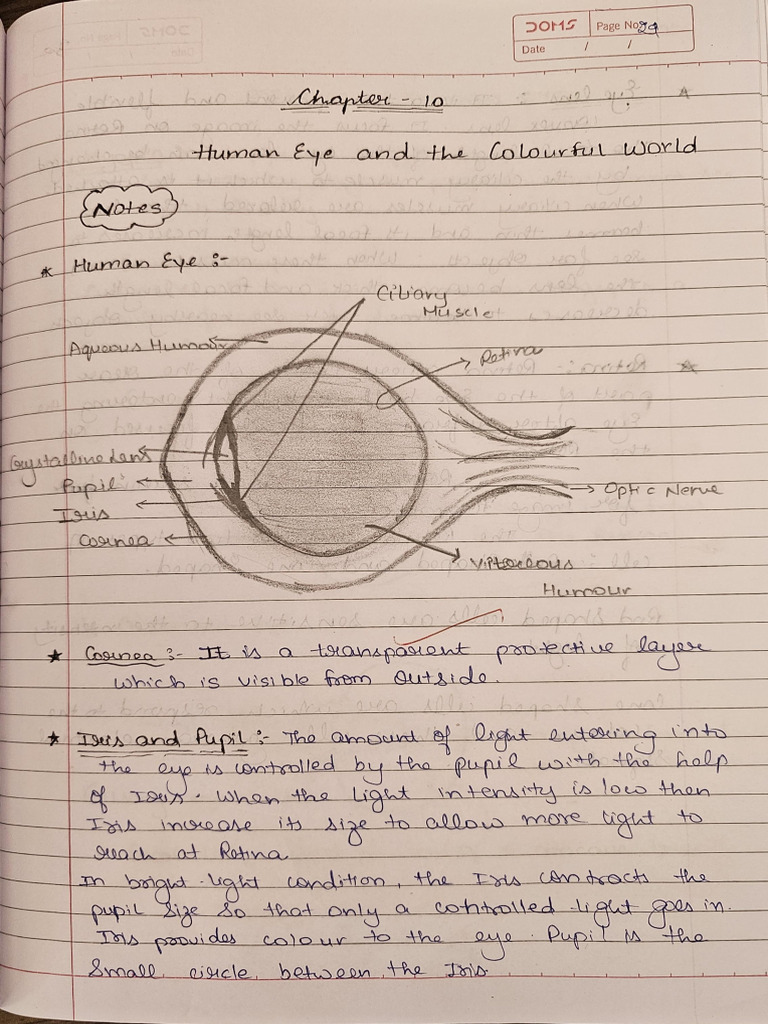 DOMS Page No. 29
Date / /
Chapter - 10
Human Eye and the Colourful World
Notes
* Human Eye :-
Ciliary
Muscle
Aqueous Humour
Retina
Crystalline Lens
Pupil
Iris
Optic Nerve
Cornea
Vitreous
Humour
* Cornea :- It is a transparent protective layer
which is visible from outside.
* Iris and Pupil :- The amount of light entering into
the eye is controlled by the pupil with the help
of Iris. When the Light intensity is low then
Iris increase its size to allow more light to
reach at Retina
In bright light condition, the Iris contracts the
pupil size so that only a controlled light goes in.
Iris provides colour to the eye. Pupil is the
Small circle between the Iris.